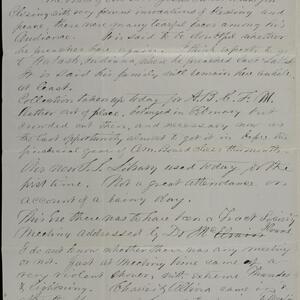 Closing with very fervent invocations & Blessing and
pave, there were many tearful faces among his
Audience. It is said to be doubtful whether
he preaches here again. I think expects to go
to Wabash, Indiana, where he preached once Sabbath
It is said his family will remain here awhile
at least.
Collection taken up today for A.B.C.F.M.
Rather out of place, belonged in February but
crowded out then, and necessary now as
the last opportunity almost to get it in before the
financial year of Com. Board closes this month
Our new S.S. Library used today for the
first time. Not a great attendance on
account of a rainy day.
This Eve there was to have been a Tract Society
Meeting addressed by Dr
I do not know whether there was any meeting
or not. Just at Meeting time came up a
very violent Shower, with extreme Thunder
& Lightning. Charles & Elvira came in